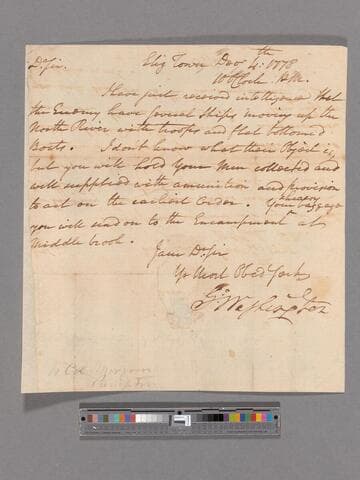 Eliz Town Decr 4th: 1778
10 OClock AM.
Dr Sir.
I have just received intelligence that
the Enemy have several Ships moving up the
North River with troops and flat bottomed
Boats. I don't know what their Object is,
but you will hold your Men collected and
well supplied with amunition and provision
to act on the earliest Order. Your heavy baggage
you will send on to the Encampmt at
Middle brook.
I am Dr Sir
Yr Most Obed Servt
Go Washington